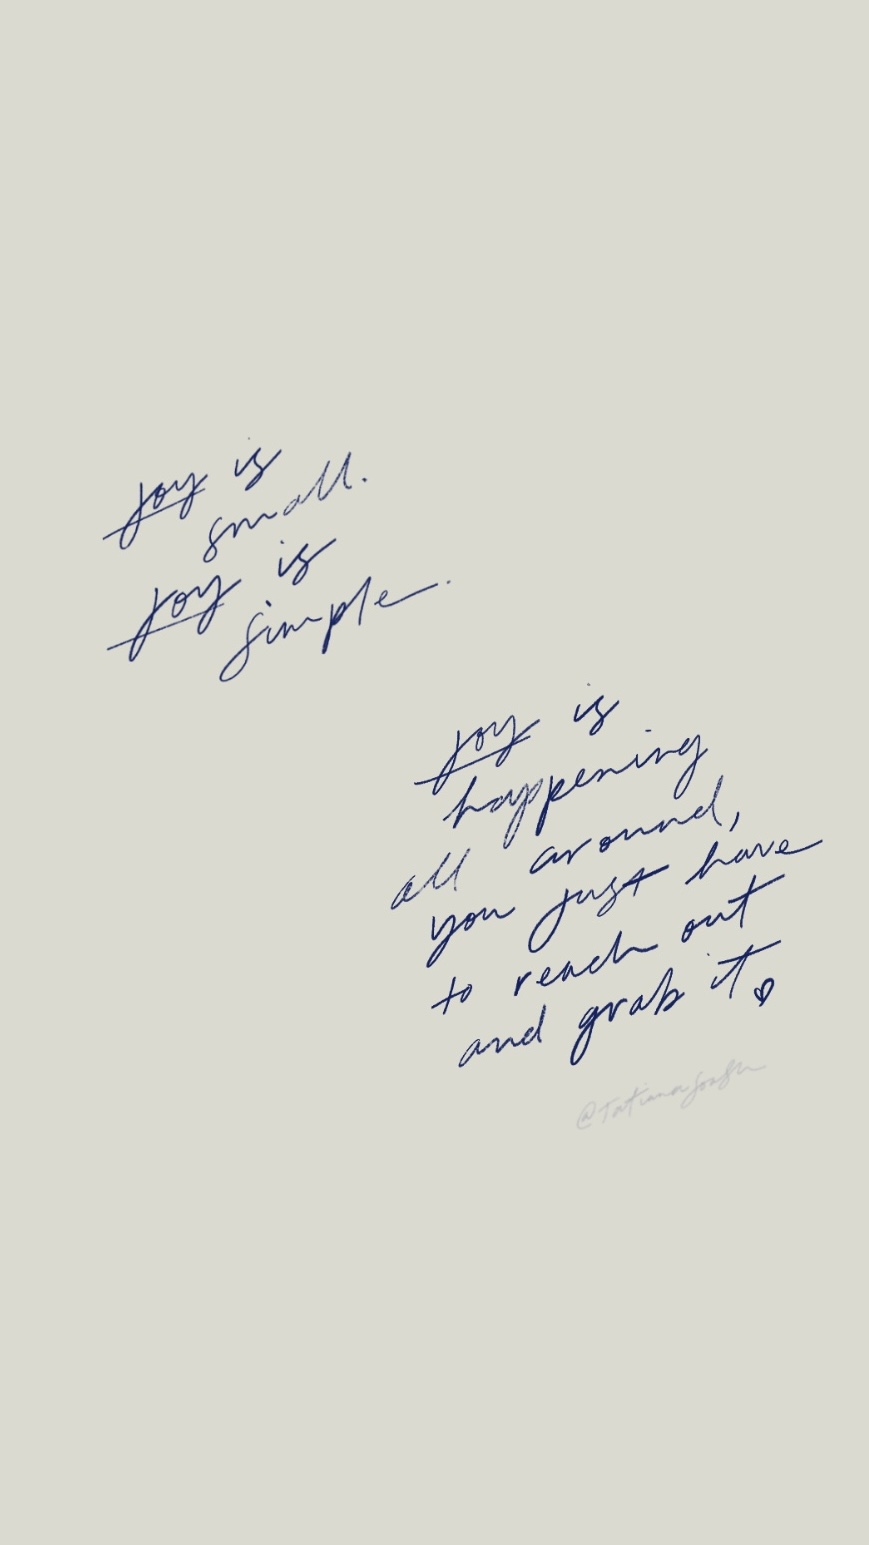 Joy is
small.
Joy is
simple.
Joy is
happening
all around,
you just have
to reach out
and grab it